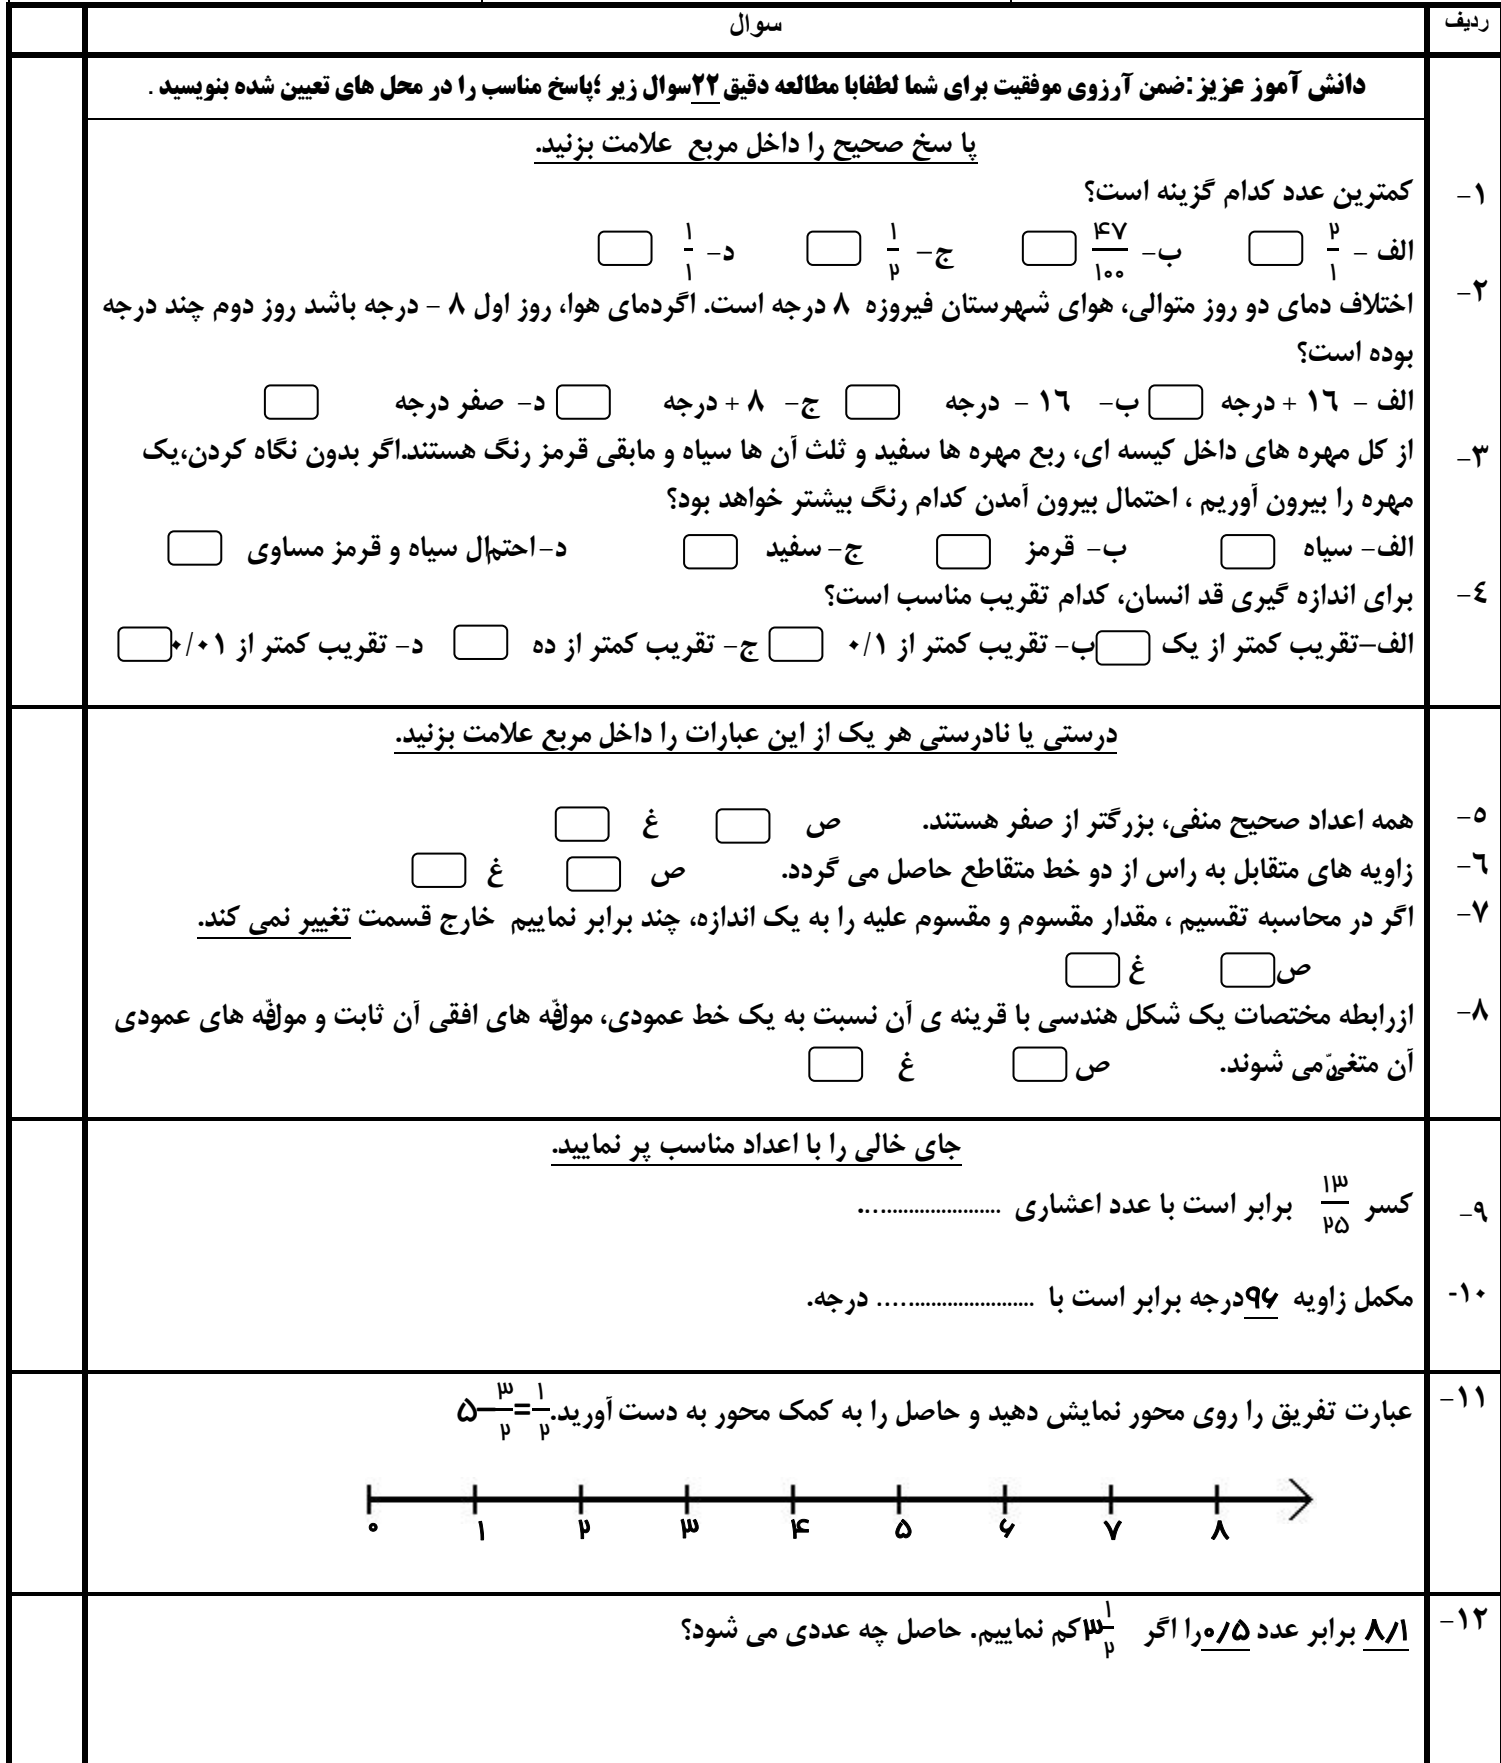 ردیف سوال
دانش آموز عزیز :ضمن آرزوی موفقیت برای شما لطفابا مطالعه دقیق ۲۲سوال زیر ؛پاسخ مناسب را در محل های تعیین شده بنویسید .
پا سخ صحیح را داخل مربع علامت بزنید.
۱- کمترین عدد کدام گزینه است؟
الف - ۲/۱ ب- ۴۷/۱۰۰ ج- ۱/۲ د- ۱/۱
۲- اختلاف دمای دو روز متوالی، هوای شهرستان فیروزه ۸ درجه است. اگردمای هوا، روز اول ۸ - درجه باشد روز دوم چند درجه
بوده است؟
الف - ۱۶ + درجه ب- ۱۶ - درجه ج- ۸ + درجه د- صفر درجه
۳- از کل مهره های داخل کیسه ای، ربع مهره ها سفید و ثلث آن ها سیاه و مابقی قرمز رنگ هستند.اگر بدون نگاه کردن،یک
مهره را بیرون آوریم ، احتمال بیرون آمدن کدام رنگ بیشتر خواهد بود؟
الف- سیاه ب- قرمز ج- سفید د-احتمال سیاه و قرمز مساوی
۴- برای اندازه گیری قد انسان، کدام تقریب مناسب است؟
الف-تقریب کمتر از یک ب- تقریب کمتر از ۰/۱ ج- تقریب کمتر از ده د- تقریب کمتر از ۰/۰۱
درستی یا نادرستی هر یک از این عبارات را داخل مربع علامت بزنید.
۵- همه اعداد صحیح منفی، بزرگتر از صفر هستند. ص غ
۶- زاویه های متقابل به راس از دو خط متقاطع حاصل می گردد. ص غ
۷- اگر در محاسبه تقسیم ، مقدار مقسوم و مقسوم علیه را به یک اندازه، چند برابر نماییم خارج قسمت تغییر نمی کند.
ص غ
۸- ازرابطه مختصات یک شکل هندسی با قرینه ی آن نسبت به یک خط عمودی، مولفّه های افقی آن ثابت و مولفّه های عمودی
آن متغیّرمی شوند. ص غ
جای خالی را با اعداد مناسب پر نمایید.
۹- کسر ۱۳/۲۵ برابر است با عدد اعشاری .........................
۱۰- مکمل زاویه ۹۶درجه برابر است با ......................... درجه.
۱۱- عبارت تفریق را روی محور نمایش دهید و حاصل را به کمک محور به دست آورید. ۵-۳/۲=۱/۲
۰ ۱ ۲ ۳ ۴ ۵ ۶ ۷ ۸
۱۲- ۸/۱ برابر عدد ۰/۵را اگر ۳ ۱/۲ کم نماییم. حاصل چه عددی می شود؟